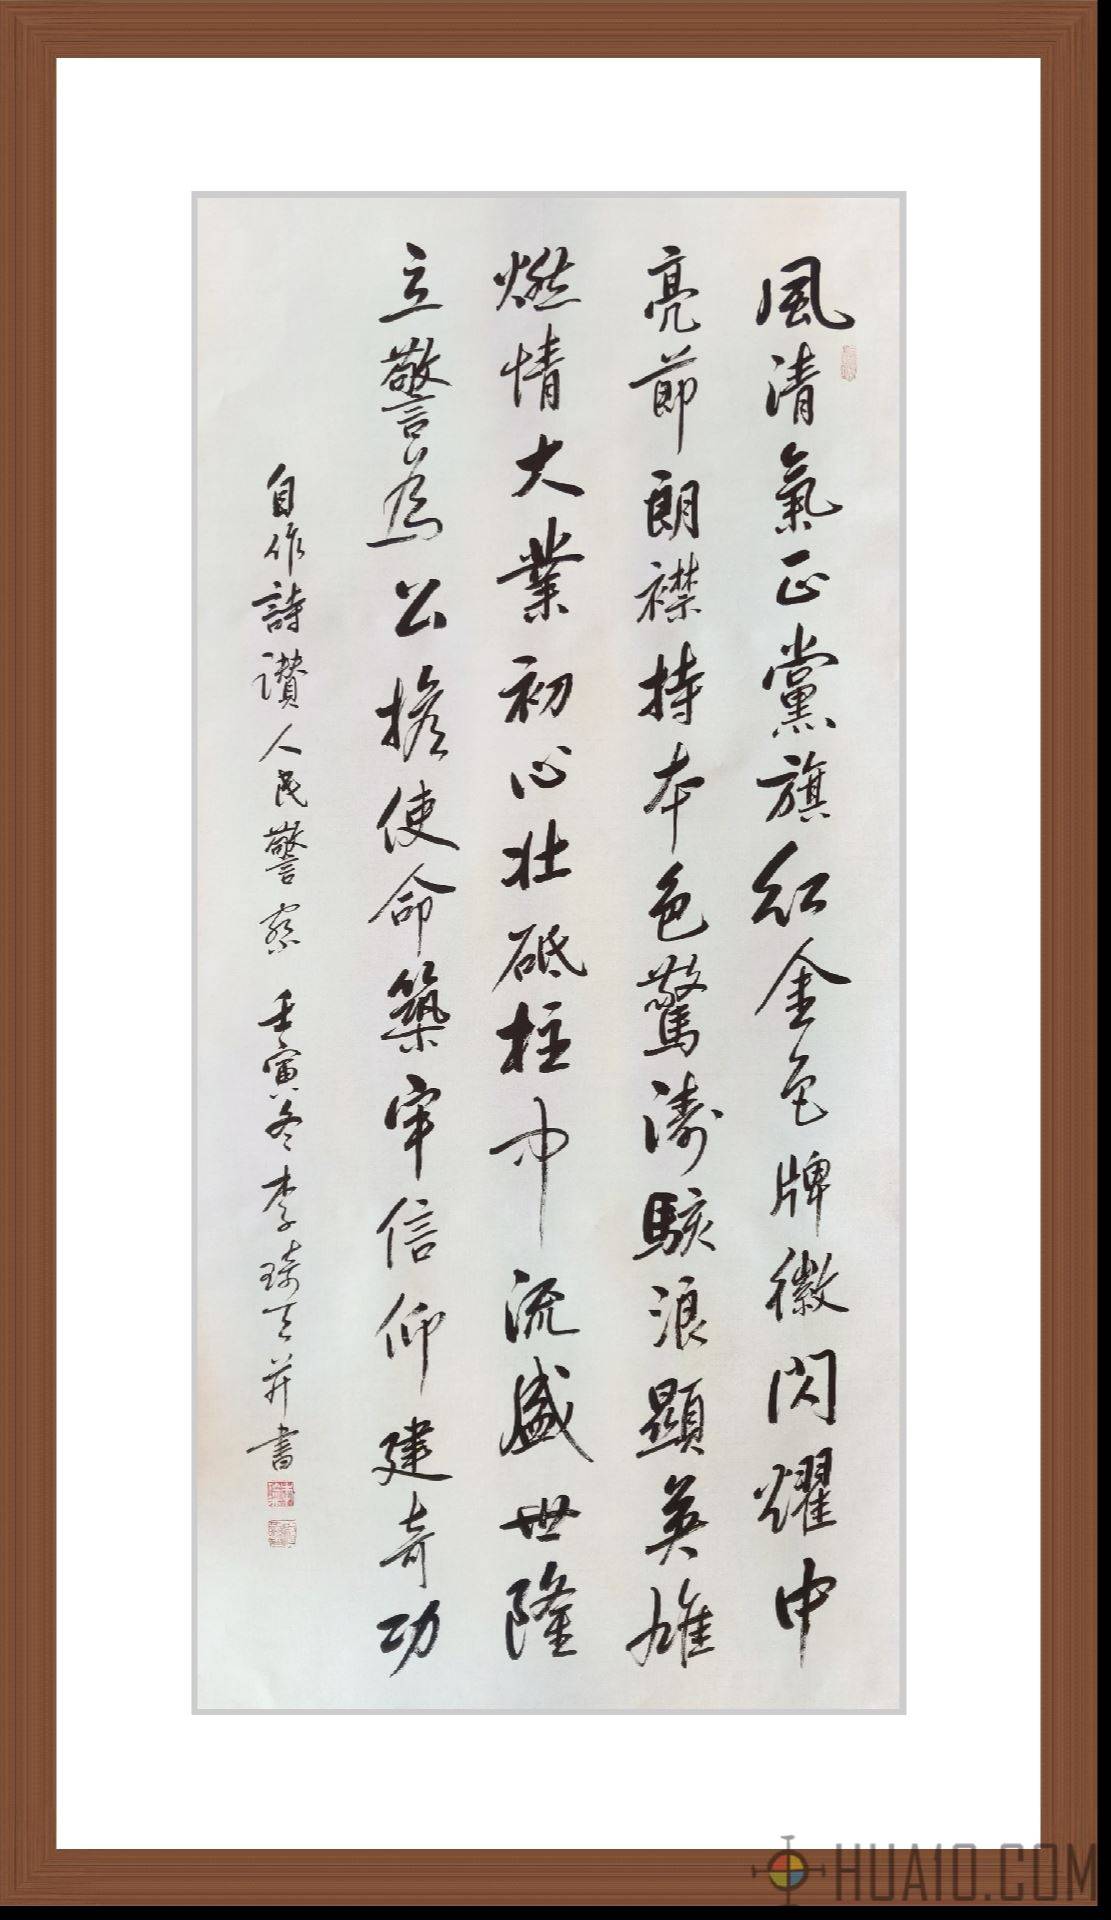 風清氣正黨旗紅金色牌徽閃耀中
亮節朗襟持本色驚濤駭浪顯英雄
燃情大業初心壯砥柱中流盛世隆
立警為公擔使命築牢信仰建奇功
自作詩讚人民警察 壬寅冬李琦天并書
HUA10.COM